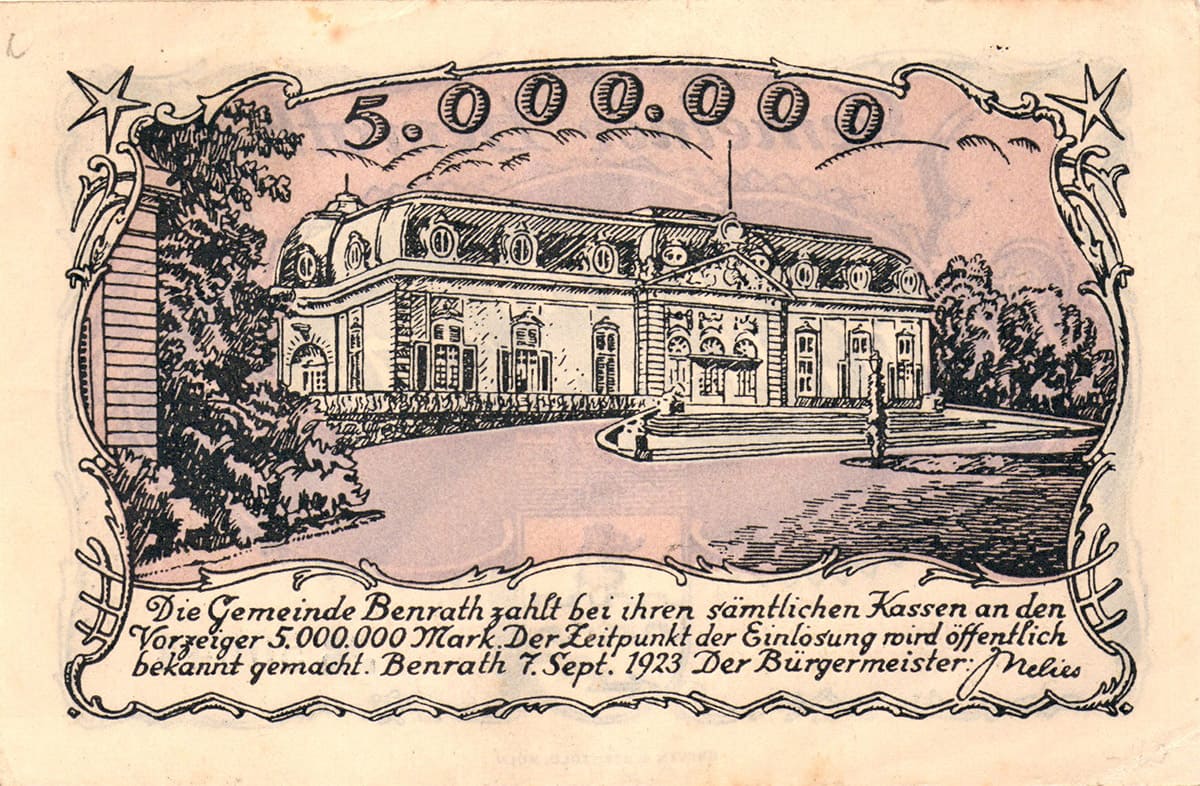 5.000.000
Die Gemeinde Benrath zahlt bei ihren sämtlichen Kassen an den
Vorzeiger 5.000.000 Mark. Der Zeitpunkt der Einlösung wird öffentlich
bekannt gemacht. Benrath 7. Sept. 1923 Der Bürgermeister: Melies